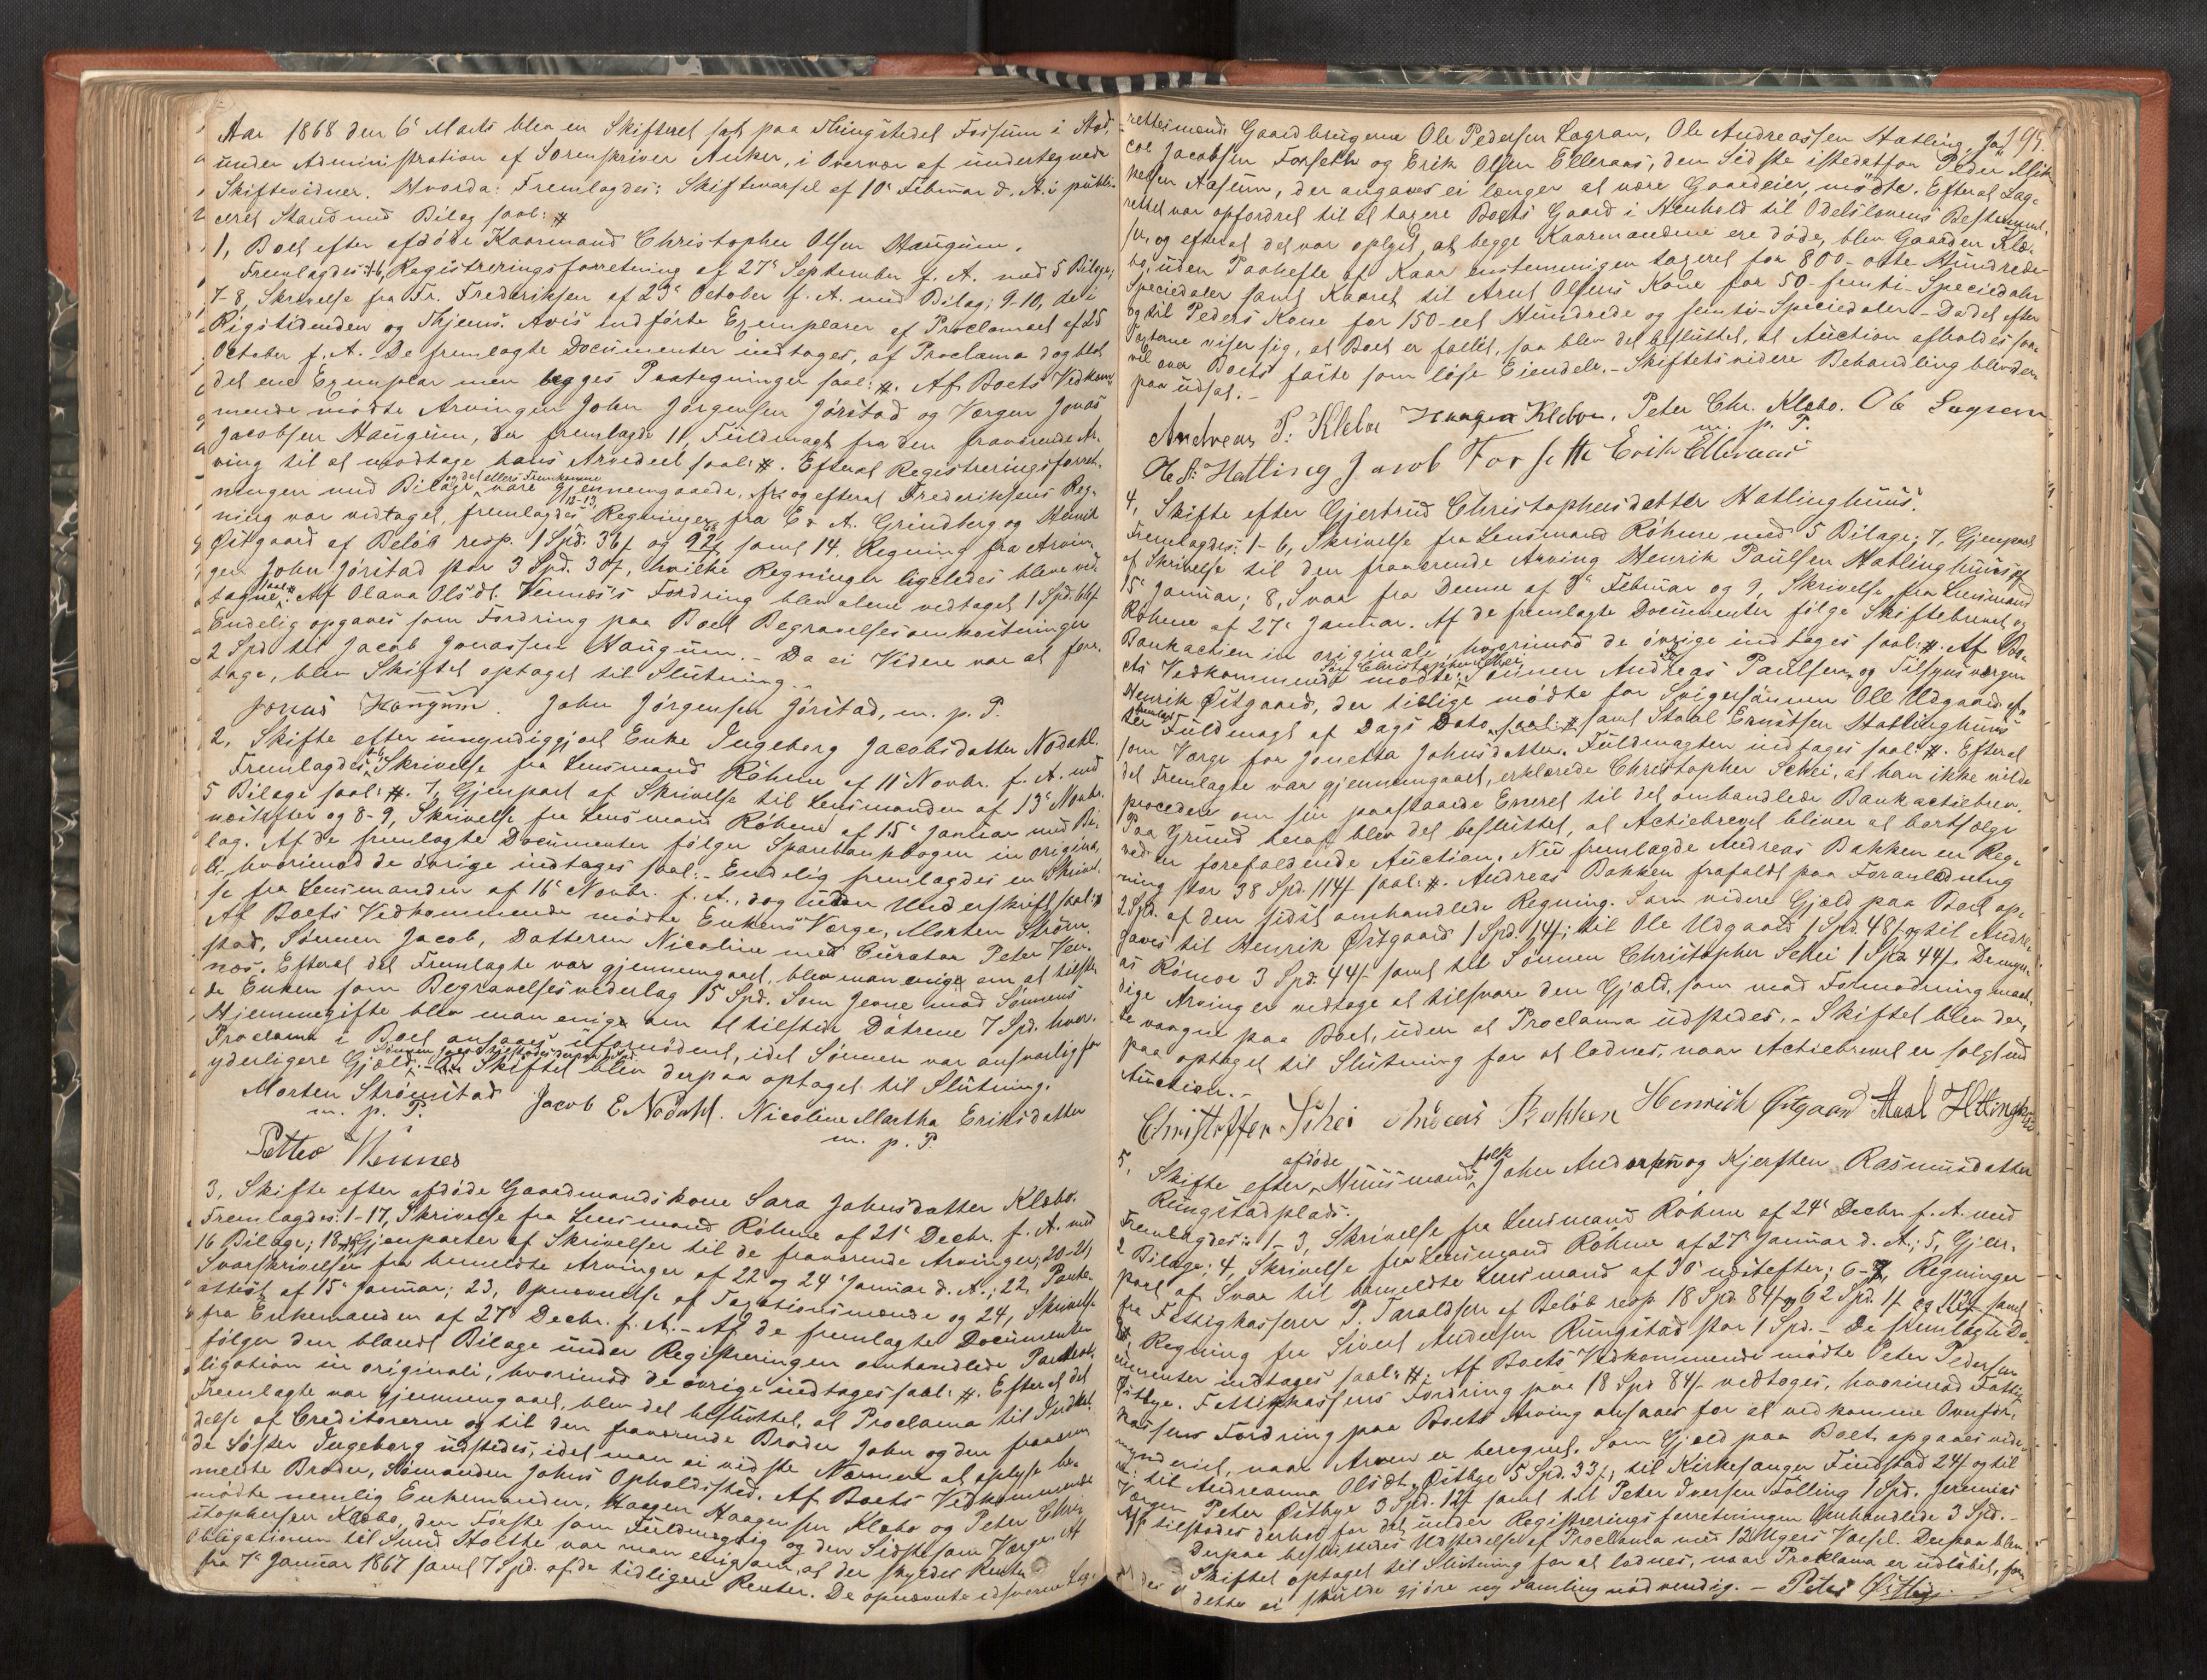 Aar 1868 den 6' Marts blev en Skifteret sat paa Thingstedet Fossum i Stod,
under Administration af Sorenskriver Anker, i Overvær af undertegnede
Skiftevidner. Hvorda: Fremlagdes: Skiftevarsel af 10' Februar d. A. i publi-
ceret Stand med Bilag saal: #
1, Boet efter afdøde Kaarmand Christopher Olsen Haugum.
Fremlagdes 1-6, Registreringsforretning af 27' September f. A. med 5 Bilage;
7-8, Skrivelse fra Fr. Frederiksen af 23' October f. A. med Bilag; 9-10, de i
Rigstidenden og Thjems. Avis indførte Exemplarer af Proclamaet af 25
October f. A. De fremlagte Documenter indtages, af Proclama dog blot
det ene Exemplar men begges Paategninger saal: #. Af Boets Vedkom-
mende mødte Arvingen John Jørgensen Jørstad og Værgen Jonas
Jacobsen Haugum, der fremlagde 11, Fuldmagt fra den fraværende Ar-
ving til at modtage hans Arvedeel saal: #. Efterat Registreringsforret-
ningen med Bilage og det ellers Fremkomne vare gjennemgaaede, og efterat Frederiksens Reg-
ning var vedtaget, fremlagdes 12-13, Regninger fra E. A. Grindberg og Henrik
Østgaard af Beløb resp. 1 Spd. 36 s og 92 s samt 14, Regning fra Arvin-
gen John Jørstad stor 3 Spd. 30 s, hvilke Regninger ligeledes bleve ved-
tagne saal: #. Af Olava Olsdt. Vennes's Fordring blev alene vedtaget 1 Spd.
Endelig opgaves som Fordring paa Boet Begravelsesomkostninger
2 Spd til Jacob Jonassen Haugum. - Da ei Videre var at fore-
tage, blev Skiftet optaget til Slutning. -
Jonas Haugum. John Jørgensen Jørstad, m. p. P.
2, Skifte efter umyndiggjort Enke Ingeborg Jacobsdatter Nodahl.
Fremlagdes 1-6, Skrivelse fra Lensmand Røhme af 11' Novbr. f. A. med
5 Bilage saal: #. 7, Gjenpart af Skrivelse til Lensmanden af 13' Novbr.
næstefter og 8-9, Skrivelse fra Lensmand Røhme af 15' Januar med Bi-
lag. Af de fremlagte Documenter følger Sparebankbogen in origina-
li, hvorimod de øvrige indtages saal: - Endelig fremlagdes en Skrivel-
se fra Lensmanden af 16' Novbr. f. A., dog uden Underskrift saal: #
Af Boets Vedkommende mødte Enkens Værge, Morten Strøm-
stad, Sønnen Jacob, Datteren Nicoline med Curator Peter Ven-
nes. Efterat det Fremlagte var gjennemgaaet, blev man enige om at tilstede
Enken som Begravelsesvederlag 15 Spd. Som Jevne mod Sønnens
Hjemmegifte blev man enige om at tilstede Døtrene 7 Spd. hver.
Proclama i Boet ansaaes ufornødent, idet Sønnen var ansvarlig for
yderligere Gjæld. - Skiftet blev derpaa optaget til Slutning.
Morten Strømstad Jacob E Nodahl. Nicoline Martha Eriksdatter
m. p. P. m. p. P.
Petter Wennes
3, Skifte efter afdøde Gaardmandskone Sara Johnsdatter Klæbo.
Fremlagdes: 1-17, Skrivelse fra Lensmand Røhme af 21' Decbr. f. A. med
16 Bilage; 18-19, Gjenparter af Skrivelser til de fraværende Arvinger; 20-21,
Svarskrivelser fra bemeldte Arvinger af 22 og 24' Januar d. A.; 22, Pante-
attest af 15' Januar; 23, Opnævnelse af Taxationsmænd og 24, Skrivelse
fra Enkemanden af 27' Decbr. f. A. - Af de fremlagte Documenter
følger den blandt Bilage under Registreringen omhandlede Panteob-
ligation in originali, hvorimod de øvrige indtages saal: #. Efterat det
Fremlagte var gjennemgaaet, blev det besluttet, at Proclama til Indkal-
delse af Creditorerne og til den fraværende Broder John og den fraværen-
de Søster Ingeborg udstedes, idet man ei vidste Nærmere at oplyse be-
meldte Broder, Sømanden Johns Opholdssted. Af Boets Vedkommende
mødte nemlig Enkemanden, Haagen Haagensen Klæbo og Peter Chri-
stophersen Klæbo, den Første som Fuldmægtig og den Sidste som Værge. Af
Obligationen til Sund Holthe var man enig om, at der skyldes Renter
fra 7' Januar 1867 samt 7 Spd. af de tidligere Renter. De opnævnte edsvorne Lag-
195.
rettesmænd: Gaardbrugerne Ole Pedersen Lagran, Ole Andreassen Hatling, Ja-
cob Jacobsen Forseth og Erik Olsen Elleraas, den Sidste istedetfor Peder Mik-
kelsen Aasum, der angaves ei længer at være Gaardeier, mødte. Efterat Lag-
rettet var opfordret til at taxere Boets Gaard i Henhold til Odelslovens Bestemmel-
ser, og efterat det var oplyst, at begge Kaarmændene ere døde, blev Gaarden Klæ-
bo, uden Paahefte af Kaar eenstemmigen taxeret for 800 - otte Hundrede -
Speciedaler samt Kaaret til Arnt Olsens Kone for 50 - femti - Speciedaler
og til Peders Kone for 150 - eet Hundrede og femti - Speciedaler - Da det efter
Taxterne viser sig, at Boet er fallit, saa blev det besluttet, at Auction afholdes saa-
vel over Boets faste som løse Eiendele. - Skiftets videre Behandling blev der-
paa udsat. -
Andreas P: Klebo Haagen Klebo. Peter Chr. Klæbo. Ole Lagran
m. p. P.
O. A: Hatling Jacob Forseth Erik Elleraas
4, Skifte efter Gjertrud Christophersdatter Hatlinghuus.
Fremlagdes: 1-6, Skrivelse fra Lensmand Røhme med 5 Bilage; 7, Gjenpart
af Skrivelse til den fraværende Arving Henrik Paulsen Hatlinghuus af
15' Januar; 8, Svar fra Denne af 8' Februar og 9, Skrivelse fra Lensmand
Røhme af 27' Januar. Af de fremlagte Documenter følge Skiftebrevet og
Bankactien in originale, hvorimod de øvrige indtages saal: #. Af Bo-
ets Vedkommende mødte: Sønnen Christopher Schei, Sønnen Andreas Paulsen og Tilsynsværgen
Henrik Østgaard, der tillige mødte for Svigersønnen Ole Udgaard ef-
ter fremlagt Fuldmagt af Dags Dato, saal: # samt Staal Ernstsen Hatlinghuus
som Værge for Jonetta Johnsdatter. Fuldmagten indtages saal: #. Efterat
det Fremlagte var gjennemgaaet, erklærede Christopher Schei, at han ikke vilde
procedere om sin paastaaede Eneret til det omhandlede Bankactiebrev.
Paa Grund heraf blev det besluttet, at Actiebrevet bliver at bortsælge
ved en forefaldende Auction. Nu fremlagde Andreas Bakken en Reg-
ning stor 38 Spd. 114 s saal: #. Andreas Bakken frafaldt paa Foranledning
2 Spd. af den sidst omhandlede Regning. Som videre Gjæld paa Boet op-
gaves til Henrik Østgaard 1 Spd. 14 s; til Ole Udgaard 1 Spd. 48 s og til Andre-
as Rømoe 3 Spd. 44 s samt til Sønnen Christopher Schei 1 Spd. 44 s. De myn-
dige Arvinger vedtage at tilsvare den Gjæld, som mod Formodning maat-
te vorde paa Boet, uden at Proclama udstedes. - Skiftet blev der-
paa optaget til Slutning for at lodnes, naar Actiebrevet er solgt ved
Auction. -
Christoffer Schei Andreas Bakken Henrich Østgaard Staal Hatlinghus
5, Skifte efter afdøde Huusmandsfolk John Andersen og Kjersten Rasmusdatter
Rungstadplads.
Fremlagdes: 1-3, Skrivelse fra Lensmand Røhme af 24' Decbr. f. A. med
2 Bilage; 4, Skrivelse fra Lensmand Røhme af 27' Januar d. A.; 5, Gjen-
part af Svar til bemeldte Lensmand af 30' næstefter; 6-7, Regninger
fra Fattigkasserer P. Taraldsen af Beløb resp. 18 Spd. 84 s og 62 Spd. 1 s samt
Regning fra Sivert Andersen Rungstad stor 1 Spd. - De fremlagte Do-
cumenter indtages saal: #. Af Boets Vedkommende mødte Peter Pedersen
Østbye. Fattigkassens Fordring paa 18 Spd 84 s vedtages, hvorimod Fattig-
kassens Fordring paa Boets Arving ansaaes for at vedkomme Overfor-
mynderiet, naar Arven er beregnet. Som Gjæld paa Boet opgaves videre
til Andreanna Olsdt. Østbye 5 Spd. 33 s, til Kirkesanger Findstad 24 s og til
Værgen Peter Østbye 3 Spd. 12 s samt til Peter Iversen Følling 1 Spd. Jeremias
tilstodes derhos for det under Registreringsforretningen Omhandlede 3 Spd. -
Derpaa besluttedes Udstedelse af Proclama med 12 Ugers Varsel. Derpaa blev
Skiftet optaget til Slutning for at lodnes, naar Proklama er udløbet, saa-
dette ei skulde gjøre ny Samling nødvendig. - Peter Østbye